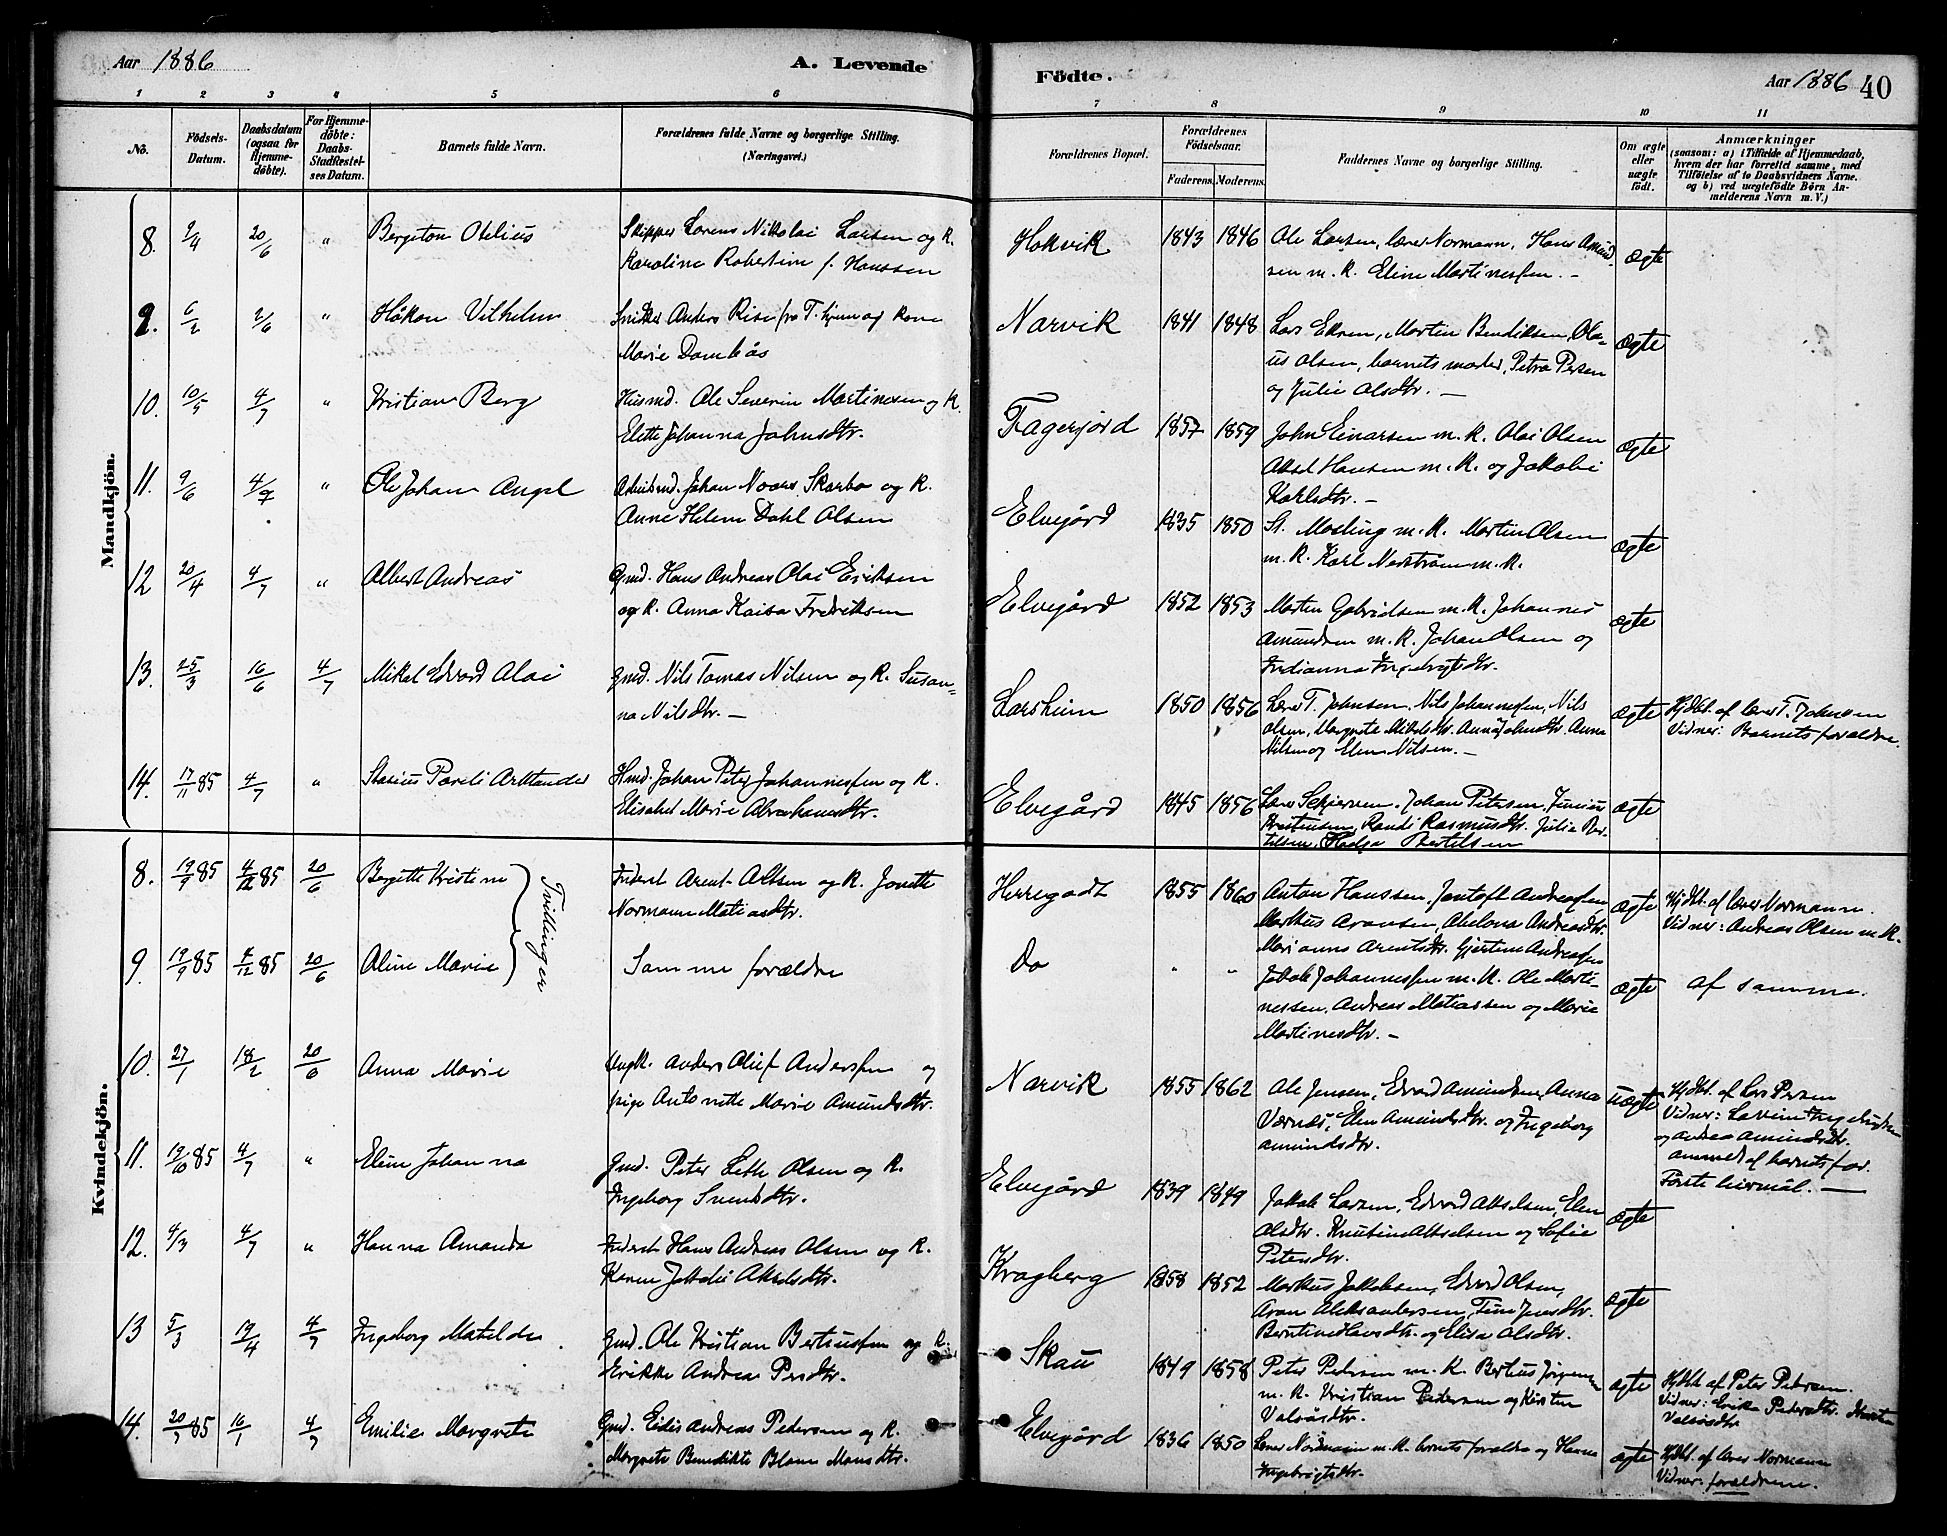 Aar 1886
A. Levende
Födte.
Aar 1886
40
1 2 3 4 5 6 7 8 9 10 11
No.
Födsels-Datum.
Daabsdatum (ogsaa for Hjemmedöbte).
For Hjemmedöbte: Daabs-Stadfæstelses Datum.
Barnets fulde Navn.
Forældrenes fulde Navne og borgerlige Stilling.
(Næringsvei.)
Forældrenes Bopæl.
Forældrenes Födselsaar.
Faderens. Moderens.
Faddernes Navne og borgerlige Stilling.
Om ægte eller uægte födt.
Anmærkninger
(saasom: a) i Tilfælde af Hjemmedaab,
hvem der har forrettet samme, med
Tilföielse af to Daabsvidners Navne.
og b) ved uægtefödte Börn An-
melderens Navn m. V.)
Mandkjön.
8. 9/4 20/6 " Bergiton Otelius
Skipper Lorens Nikolai Larsen og K.
Karoline Robertine f. Hanssen
Hokvik 1843 1846
Ole Larsen, lærer Normann, Hans Amund-
sen m. K. Eline Martinessen. –
ægte
9. 6/2 2/6 " Håkon Vilhelm
Snikker Anders Risi fra T.hjem og Kone
Marie Dombås
Narvik 1841 1848
Lars Ekren, Martin Bendiksen, Ola-
us Olsen, barnets moder, Petra Persen
og Julie Olsdtr. –
ægte
10. 10/5 4/7 " Kristian Berg
Husmd. Ole Severin Martinesen og K.
Elette Johanna Johnsdtr.
Fagerjord 1857 1859
John Einarsen m. K. Olai Olsen
Aksel Hansen m. K. og Jakobi
Karlsdtr. –
ægte
11. 9/6 4/7 " Ole Johan Angel
Arbeidsmd. Johan Noars. Skarbo og K.
Anne Helene Dahl Olsen
Elvejård 1835 1850
St. Mosling m. K. Martin Olsen
m. K. Karl Nerström m. K.
ægte
12 20/4 4/7 " Albert Andreas
Gmd. Hans Andreas Olai Eriksen
og K. Anna Kaisa Fredriksen
Elvejård 1852 1853
Morten Gabrielsen m. K. Johannes
Amundsen m. K. Johan Olsen og
Indianna Ingebrigtsdtr.
ægte
13. 25/3 16/6 4/7 Mikal Edvard Olai
Gmd. Nils Tomas Nilsen og K. Susan-
na Nilsdtr. –
Larsheim 1850 1856
Lærer T. Johnsen, Nils Johannessen, Nils
Olsen, Margrete Mikelsdtr. Anna Johnsdtr. Anna
Nilsen og Elen Nilsen. –
ægte
Hjdbt. af lærer T. Johnsen
Vidner: Barnets forældre.
14. 17/11 85 4/7 " Starius Pareli Arktander
Hmd. Johan Peter Johannessen og K.
Elisabet Marie Abrahamsdtr.
Elvegård 1845 1856
Lars Skjerven, Johan Petersen, Junius
Kristensen, Randi Rasmusdtr. Julie Ber-
telsen, Hedga Bertelsen
ægte
Kvindekjön.
8. 19/9 85 4/12 85 20/6 Bergitte Kristine
Tvillinger
Inderst Arent Olsen og K. Jonette
Normann Matiasdtr.
Herregadt 1855 1860
Anton Hanssen, Jentoft Andreassen
Markus Aronsen, Abelona Andreasdtr.
Marianne Arentsdtr. Gjertine Andreassen
ægte
Hjdbt. af lærer Normann.
Vidner: Andreas Olsen m. K.
9. 19/9 85 4/12 85 20/6 Aline Marie
Samme forældre
Do " "
Jakob Johannessen m. K. Ole Marti-
nessen, Andreas Matiassen og Marie
Martinesdtr. –
ægte
af samme.
10. 27/1 18/2 20/6 Anna Marie
Ungk. Anders Oluf Anderssen og
pige Antonette Marie Amundsdtr.
Narvik 1855 1862
Ole Jensen, Edvard Amundsen, Anna
Værnes, Elen Amundsdtr. og Ingeborg
Amundsdtr.
uægte
Hjdbt. af Lars Persen
Vidner: Lavine Ingebrigtsen
og Andrea Amundsdtr.
anmeldt af barnets far.
Förste leiermål. –
11. 19/10 85 4/7 " Eline Johanna
Gmd. Peter Leth Olsen og K.
Ingeborg Svendsdtr.
Elvejård 1839 1849
Jakob Larsen, Edvard Akselsen, Elen
Olsdtr. Knutine Akselsen og Sofie
Petersdtr.
ægte
12. 4/3 4/7 " Hanna Amanda
Inderst Hans Andreas Olsen og K.
Karen Jakobie Akselsdtr.
Kragberg 1858 1852
Markus Jakobsen, Edvard Olsen,
Aron Aleksandersen, Tine Jensdtr.
Berntine Hansdtr. og Elisa Olsdtr.
ægte
13 5/3 19/4 4/7 Ingeborg Matilde
Gmd. Ole Kristian Bertiussen og K.
Erikke Andrea Persdtr.
Skau 1849 1858
Peter Pedersen m. K. Bertius Jörgensen
m. K. Kristian Pedersen og Kirsten
Valsösdtr.
ægte
Hjdbt. af Peter Pedersen.
Vidner: Erika Pedersdtr. Kirsten
Valsösdtr
14. 20/7 85 16/1 4/7 Emilie Margrete
Gmd. Eilis Andreas Pedersen og K.
Margrete Benedikte Blom Monsdtr.
Elvejård 1836 1850
Lærer Normann m. K. barnets forældre og Hanna
Ingebrigtsdtr.
ægte
Hjdbt. af lærer Normann
Vidner: forældrene.